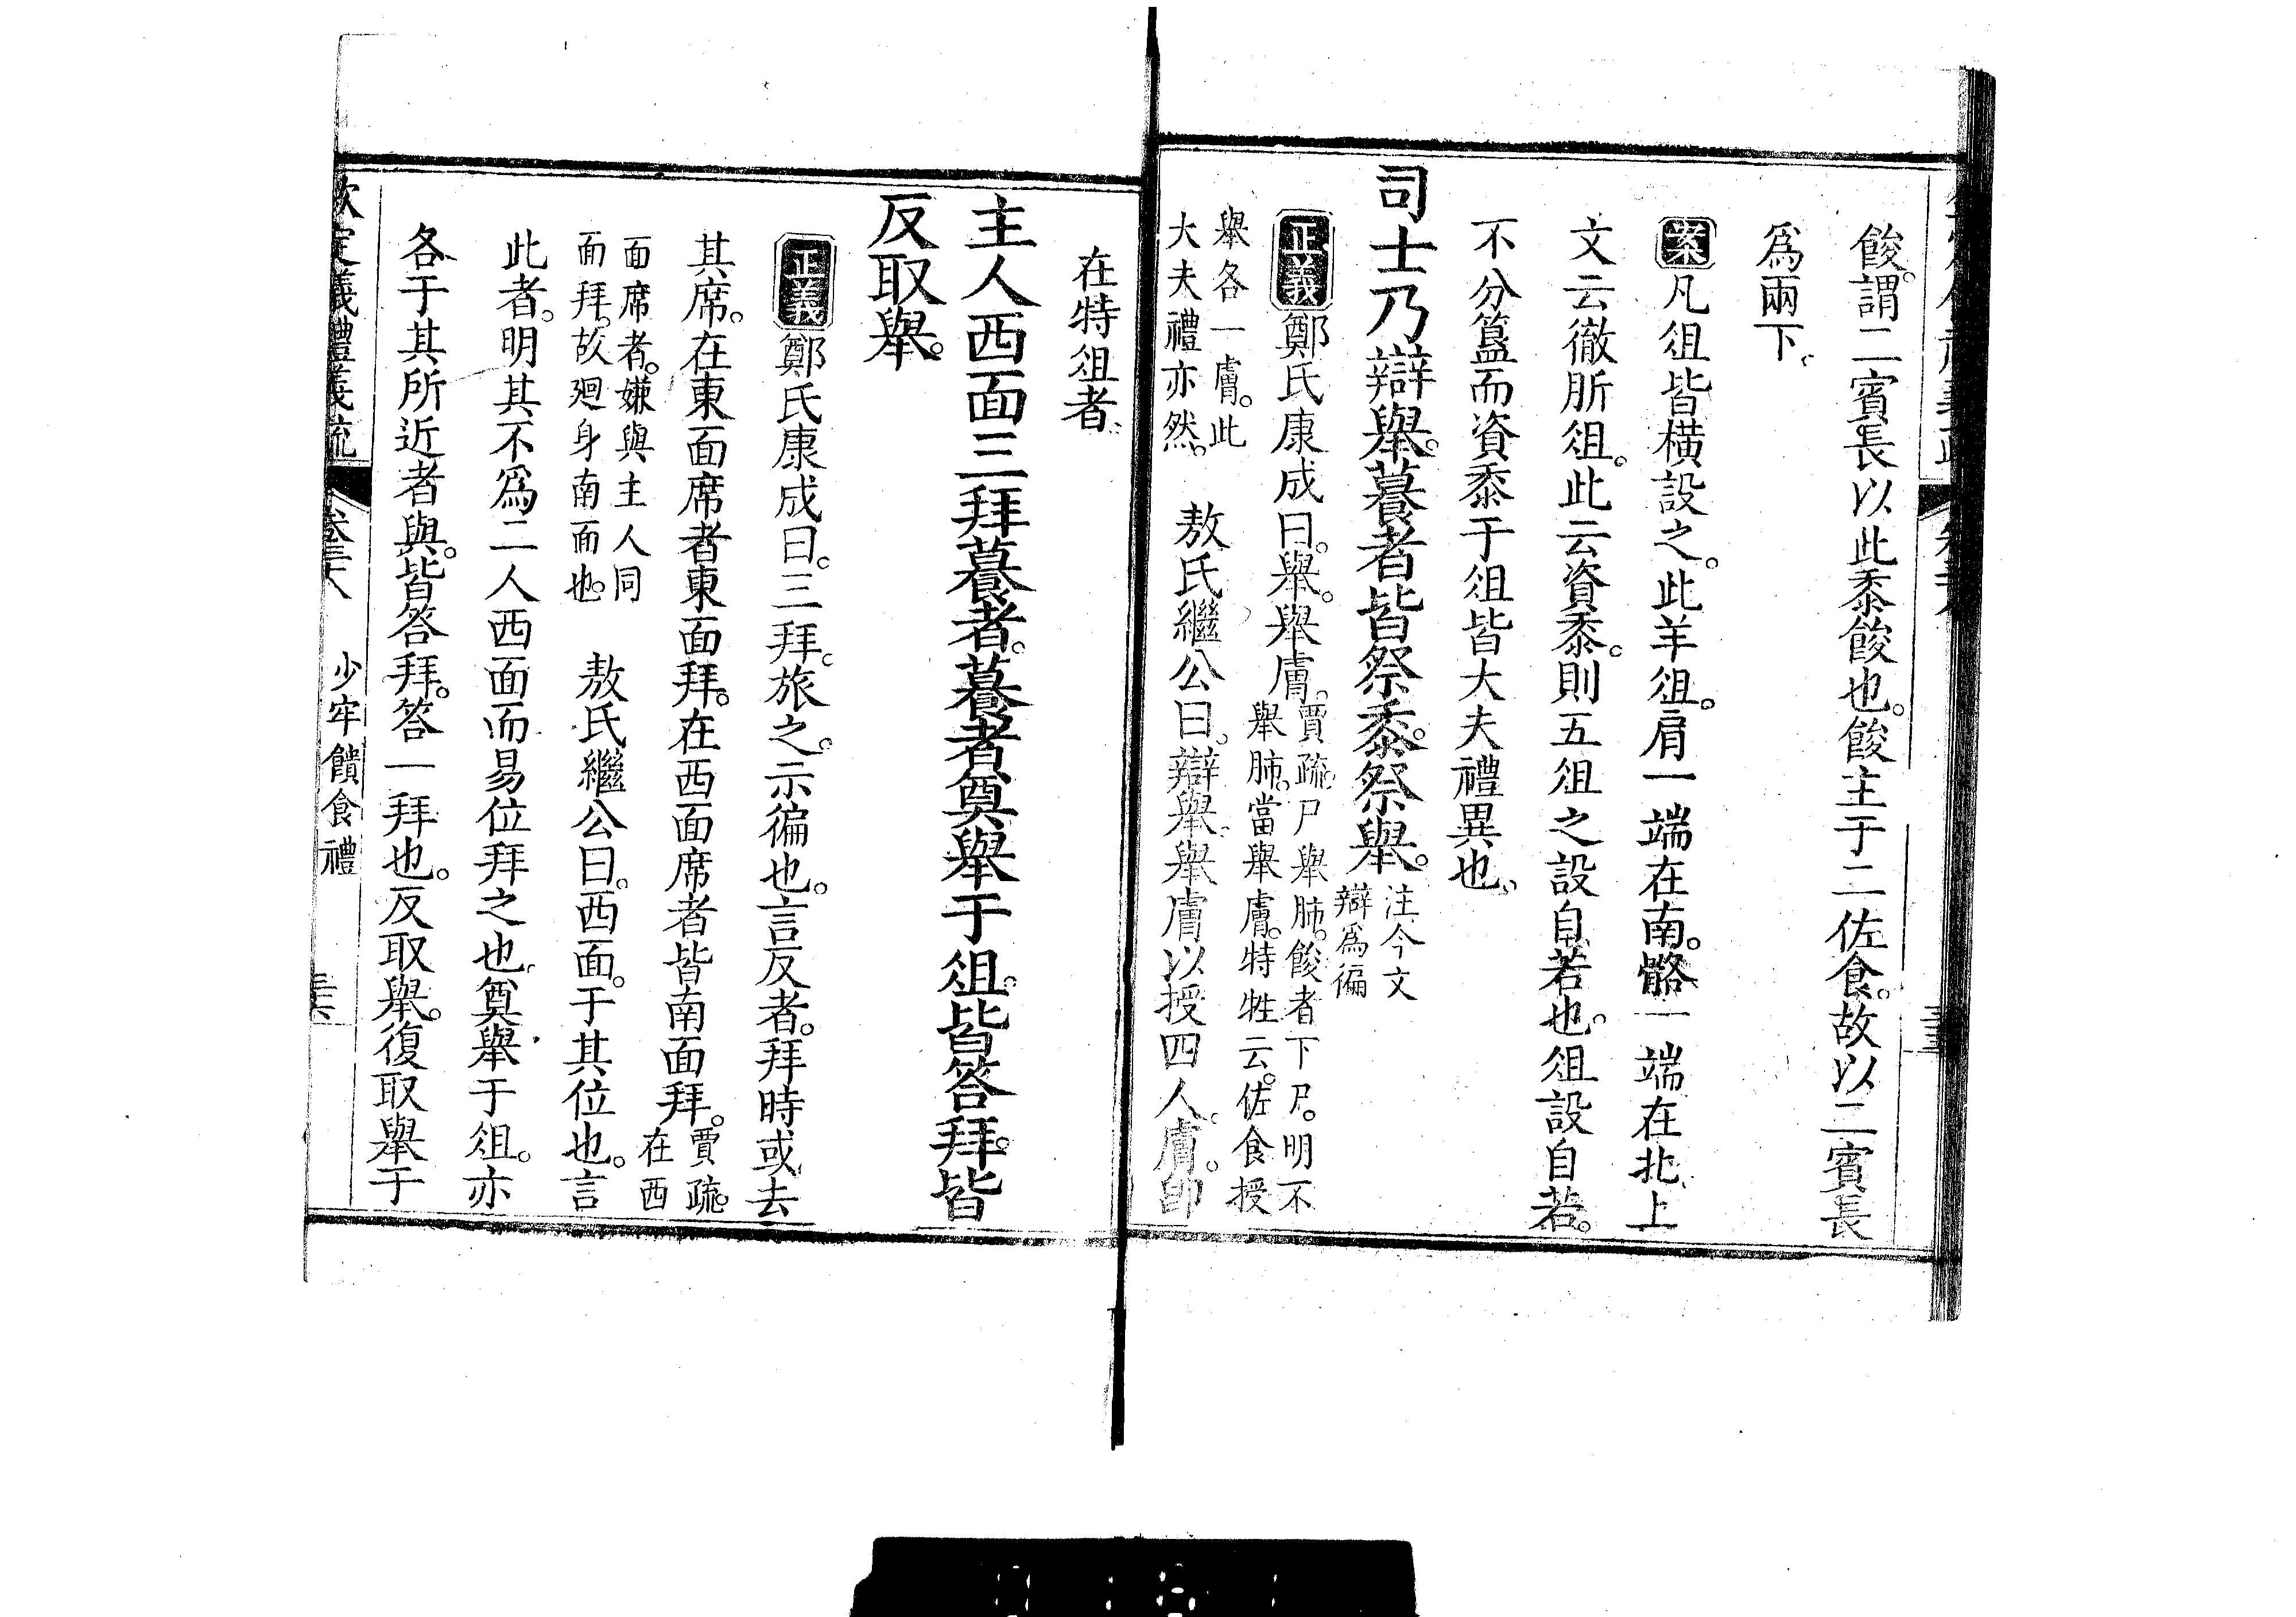 餕。謂二賓長以此黍餕也。餕主于二佐食。故以二賓長
爲兩下。
案凡俎皆橫設之。此羊俎。肩一端在南。髂一端在北。上
文云徹肵俎。此云資黍。則五俎之設自若也。俎設自若。
不分簋而資黍于俎。皆大夫禮異也。
司士乃辯舉。䉵者皆祭黍。祭舉。注今文
辯爲徧
正義鄭氏康成曰。舉。舉膚。賈疏。尸舉肺。餕者下尸。明不
舉肺。當舉膚。特牲云。佐食授
舉各一膚。此
大夫禮亦然。 敖氏繼公曰。辯舉。舉膚以授四人。膚。卽
在特俎者。
主人西面三拜䉵者。䉵者奠舉于俎。皆答拜。皆
反取舉。
正義鄭氏康成曰。三拜。旅之。示徧也。言反者。拜時或去
其席。在東面席者東面拜。在西面席者皆南面拜。賈疏。
在西
面席者。嫌與主人同
面拜。故廻身南面也。 敖氏繼公曰。西面。于其位也。言
此者。明其不爲二人西面而易位拜之也。奠舉于俎。亦
各于其所近者與。皆答拜。答一拜也。反取舉。復取舉于
欽定義禮義疏 卷三十八 少牢饋食禮